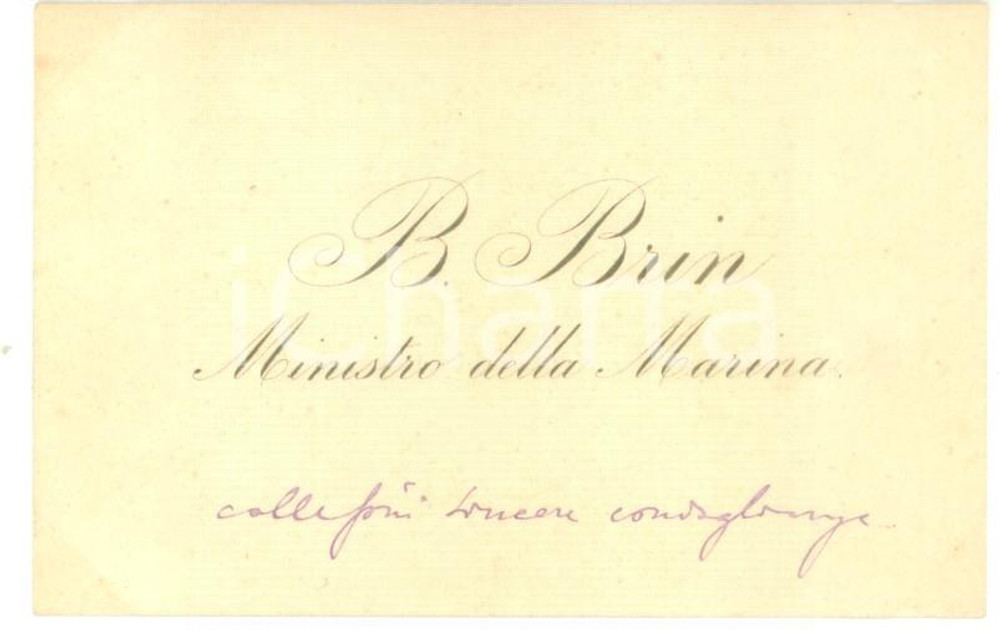 B. Brin
Ministro della Marina.
colle più sincere condoglianze
iCharta